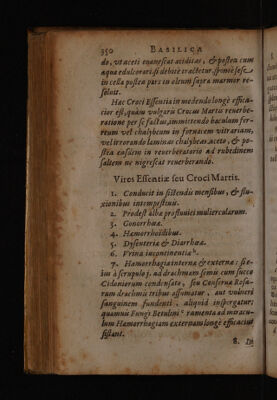 350 BASILICA
do, vt aceti euanescat aciditas, & postea cum
aqua edulcorari, si debitè tractetur, sponte sese
in cella postea pars in oleum supra marmor re-
soluit.
Hac Croci Essentia in medendo longè effica-
cior est, quàm vulgaris Crocus Martis reuerbe-
ratione per se factus, immittendo baculum fer-
reum vel chalybeum in fornacem vitrariam,
vel irrorando laminas chalybeas aceto, & po-
stea easdem in reuerberatorio ad rubedinem
saltem ne nigrescat reuerberando.
Vires Essentiæ seu Croci Martis.
1. Conducit in sistendis mensibus, & flu-
xionibus intempestiuis.
2. Prodest albæ profluuiei muliercularum.
3. Gonorrhææ.
4. Hæmorrhoidibus.
5. Dysenteriæ & Diarrhææ.
6. Vrinæ incontinentia.
7. Hæmorrhagia interna & externa: sie-
im à scrupulo j. ad drachmam semis cum succo
Cidoniorum condensato, seu Conserua Rosa-
rum drachmis tribus assumatur, aut vulneri
sanguinem fundenti, aliquid inspergatur:
quamuis Fungi Betulini ramenta ad miracu-
lum Hæmorrhagiam externam longè efficaciùs
sistant.
8.